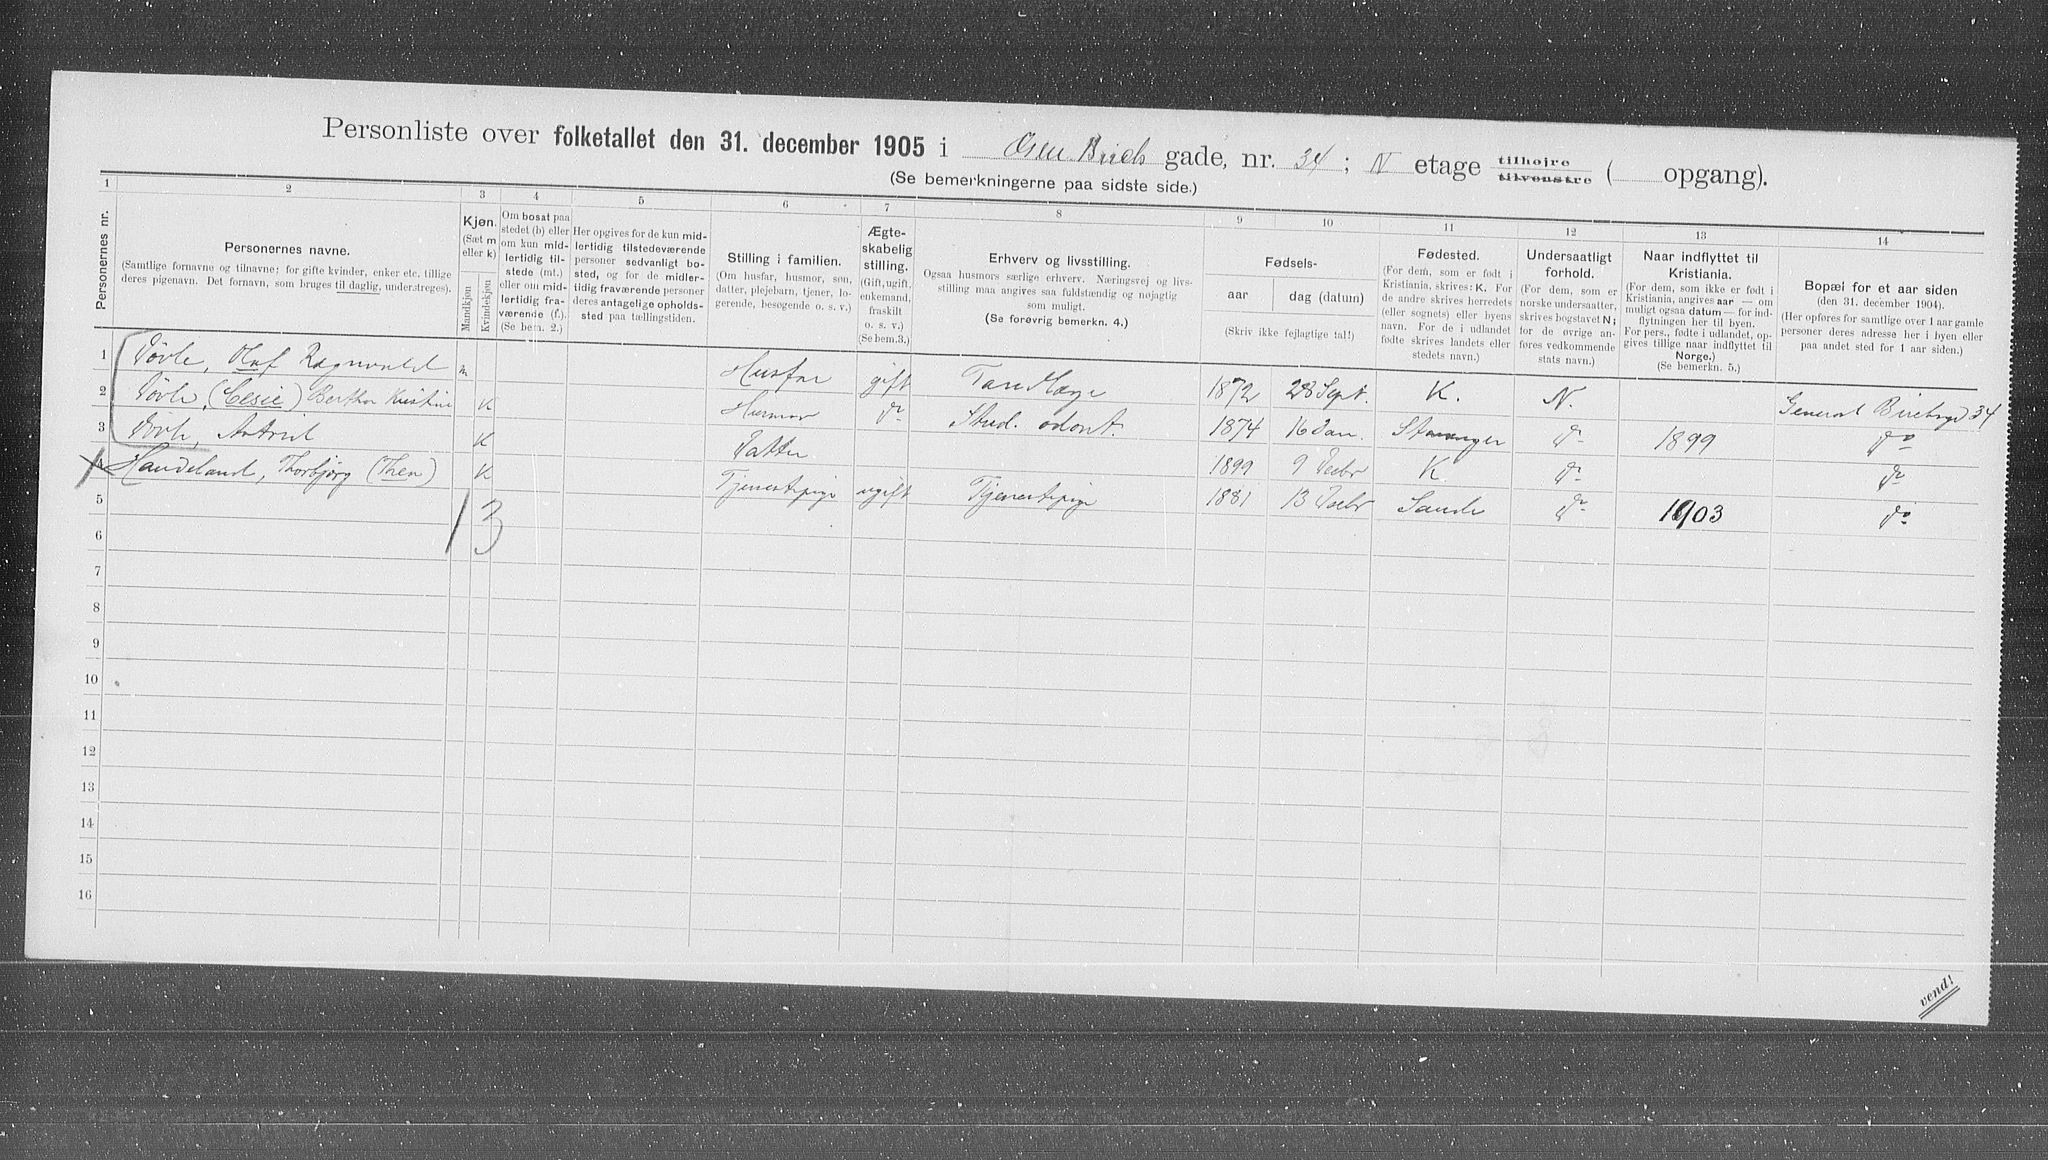 Personliste over folketallet den 31. december 1905 i Gen. Birchs gade, nr. 34; N etage tilhøjre tilvenstre ( opgang).
(Se bemerkningerne paa sidste side.)
1 2 3 4 5 6 7 8 9 10 11 12 13 14
Personernes nr.
Personernes navne.
(Samtlige fornavne og tilnavne; for gifte kvinder, enker etc. tillige deres pigenavn. Det fornavn, som bruges til daglig, understreges).
Kjøn.
(Sæt m eller k)
Mandkjøn
Kvindekjøn
Om bosat paa stedet (b) eller om kun midlertidig tilstede (mt.) eller om midlertidig fraværende (f.). (Se bem. 2.)
Her opgives for de kun midlertidig tilstedeværende personer sedvanligt bosted, og for de midlertidig fraværende personer deres antagelige opholdssted paa tællingstiden.
Stilling i familien.
(Om husfar, husmor, søn, datter, plejebarn, tjener, logerende, besøgende o. s. v.)
Ægteskabelig stilling.
(Gift, ugift, enkemand, fraskilt o. s. v.)
(Se bem. 3.)
Erhverv og livsstilling.
Ogsaa husmors særlige erhverv. Næringsvej og livsstilling maa angives saa fuldstændig og nøjagtig som muligt.
(Se forøvrig bemerkn. 4.)
Fødsels-
aar
dag (datum)
(Skriv ikke fejlagtige tal!)
Fødested.
(For dem, som er født i Kristiania, skrives: K. For de andre skrives herredets (eller sognets) eller byens navn. For de i udlandet fødte skrives landets eller stedets navn.)
Undersaatligt forhold.
(For dem, som er norske undersaatter, skrives bogstavet N; for de øvrige anføres vedkommende stats navn.)
Naar indflyttet til Kristiania.
(For dem, som ikke er født i Kristiania, angives aar — om muligt ogsaa datum — for indflytningen her til byen. For pers., fødte i udlandet, opgives tillige naar indflyttet til Norge.)
(Se bemerkn. 5.)
Bopæl for et aar siden
(den 31. december 1904).
(Her opføres for samtlige over 1 aar gamle personer deres adresse her i byen eller paa andet sted for 1 aar siden.)
1 Tøvle, Oluf Ragnvald m Husfar gift Tandlæge 1872 28 Sept. K. N. General Birchsgd 34
2 Tøvle, (Cesie) Bertha Kristine K Husmor do Stud. odont. 1874 16 Jan. Stavanger do 1899 do
3 Tøvle, Astrid K Datter 1899 9 Decbr K do do
4 Handeland, Thorbjørg (Then) K Tjenestepige ugift Tjenestepige 1881 13 Decbr Sande do 1903 do
5
1 3
6
7
8
9
10
11
12
13
14
15
16
vend!